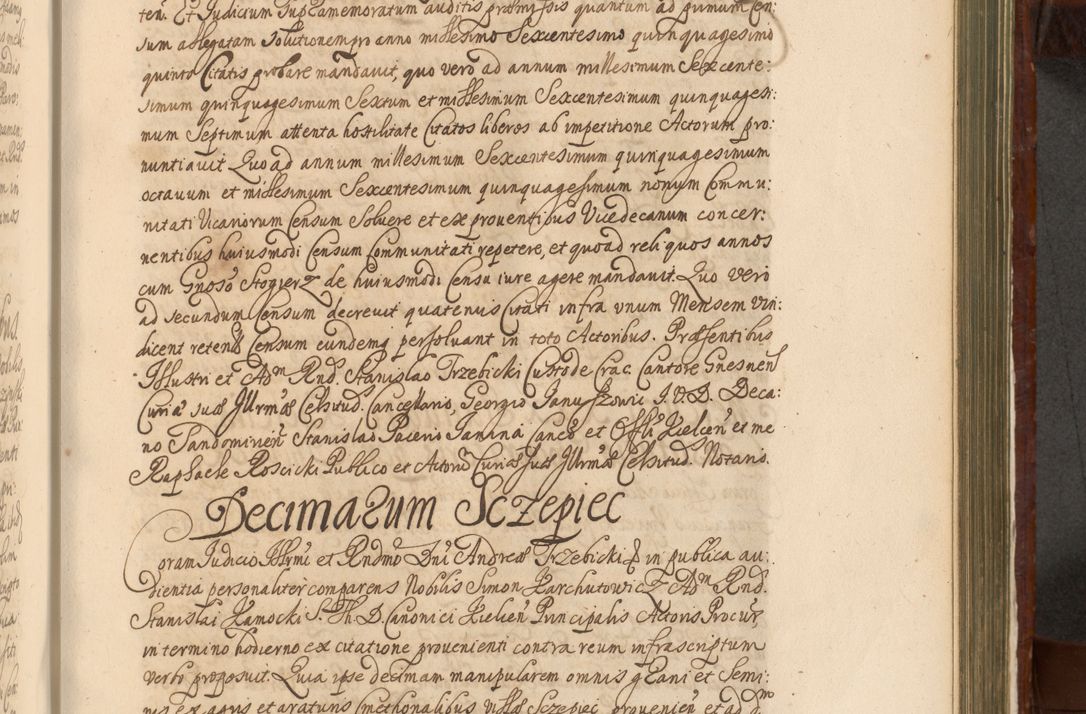 ten. Et Judicium Supramemoratum auditis præmissis quantum ad primum Cen:
sum allegatam Solutionem pro anno millesimo Sexcentesimo quinquagesimo
quinto Citatis probare mandavit, quo vero ad annum millesimum Sexcente:
simum quinquagesimum Sextum et millesimum Sexcentesimum quinquagesi:
mum Septimum attenta hostilitate Citatos liberos ab impetitione Actorum pro:
nuntiavit Quo ad annum millesimum Sexcentesimum quinquagesimum
octauum et millesimum Sexcentesimum quinquagesimum nonum Commu:
nitati Vicariorum Censum Soluere et ex prouentibus Vicedecanum concer:
nentibus huiusmodi Censum Communitati repetere, et quoad reliquos annos
cum Gnoso Stogierz de huiusmodi Censu iure agere mandauit. Quo vero
ad secundum Censum decreuit quatenus Citati infra vnum Mensem vin:
dicent retent Censum eundemq persoluant in toto Actoribus. Præsentibus
Illustri et Adm Rnd. Stanislao Trzebicki Custode Crac. Cantore Gnesnen
Curiæ suæ Illrmæ Celsitud. Cancellario, Georgio Januszowic J.V.D. Deca:
no Sandomirien Stanislao Pacerio Janina Canco et Offli Kielcen et me
Raphaele Roscicki Publico et Actorū Curiæ suæ Illrmæ Celsitud. Notario.
Decimarum Sczepiec
Coram Judicio Illrmi et Rndmo Dni Andreæ Trzebicki in publica au:
dientia personaliter comparens Nobilis Simon Karchutowicz Adm Rnd.
Stanislai Zamocki S. Th. D. Canonici Kielcen Principalis Actoris Procur
in termino hodierno ex citatione prouenienti contra reum infrascriptum
verbo proposuit. Quia ipse decimam manipularem omnis grani et Semi:
nis ex agris et araturis Cmethonalibus villæ Sczepiec prouenien et ad dm